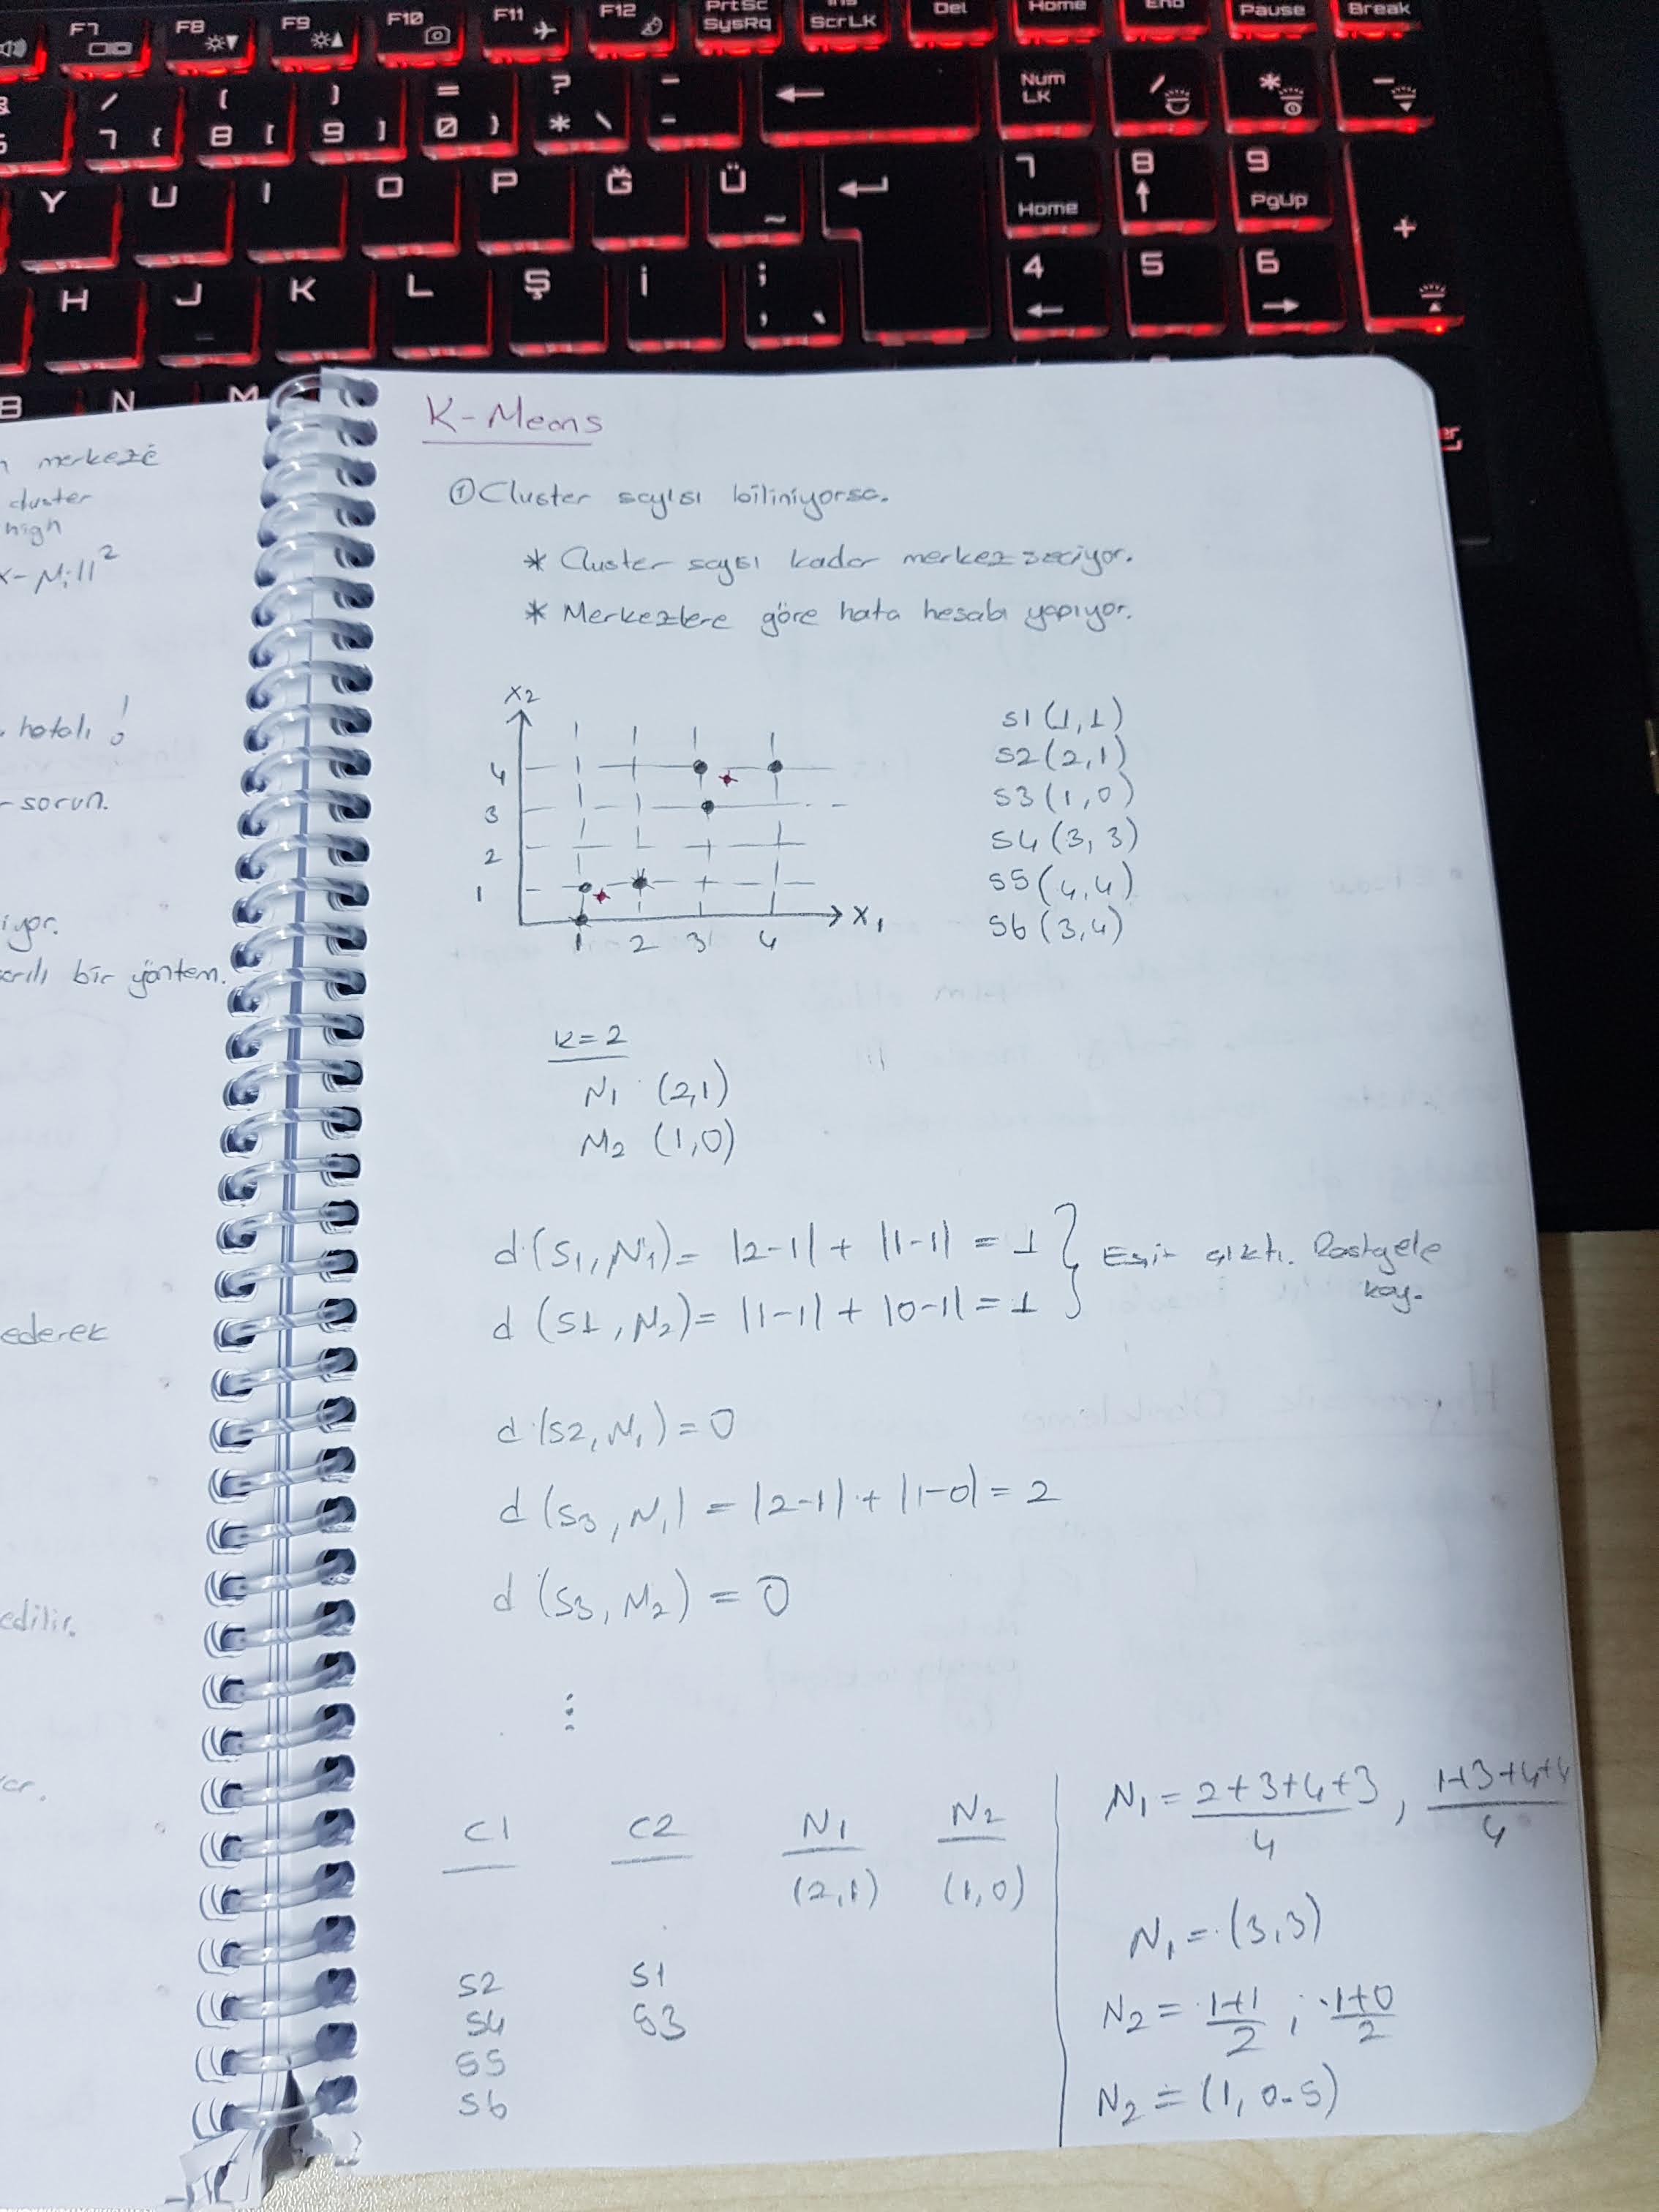 F7 F8 F9 F10 F11 F12 PrtSc SysRq ScrLK Del Home End Pause Break
/ 7 { ( 8 [ ) 9 ] = 0 } ? * \ - Num LK / * -
Y U I O P Ğ Ü ~ 7 Home 8 9 PgUp +
H J K L Ş İ ; , 4 5 6
B N M
merkeze
cluster
high
x-μi||²
hatalı !
sorun.
iyor.
bir yöntem.
ederek
edilir.
K-Means
① Cluster sayısı biliniyorsa.
* Cluster sayısı kadar merkez seçiyor.
* Merkezlere göre hata hesabı yapıyor.
x2
4
3
2
1
1 2 3 4 x1
S1 (1,1)
S2 (2,1)
S3 (1,0)
S4 (3,3)
S5 (4,4)
S6 (3,4)
k=2
N1 (2,1)
N2 (1,0)
d(S1,N1) = |2-1| + |1-1| = 1
d(S1,N2) = |1-1| + |0-1| = 1
} Eşit çıktı. Rastgele
koy.
d(S2,N1) = 0
d(S3,N1) = |2-1| + |1-0| = 2
d(S3,N2) = 0
⋮
C1 C2 N1 N2
(2,1) (1,0)
S2 S1
S4 S3
S5
S6
N1 = 2+3+4+3 / 4 , 1+3+4+4 / 4
N1 = (3,3)
N2 = 1+1 / 2 ; 1+0 / 2
N2 = (1, 0.5)